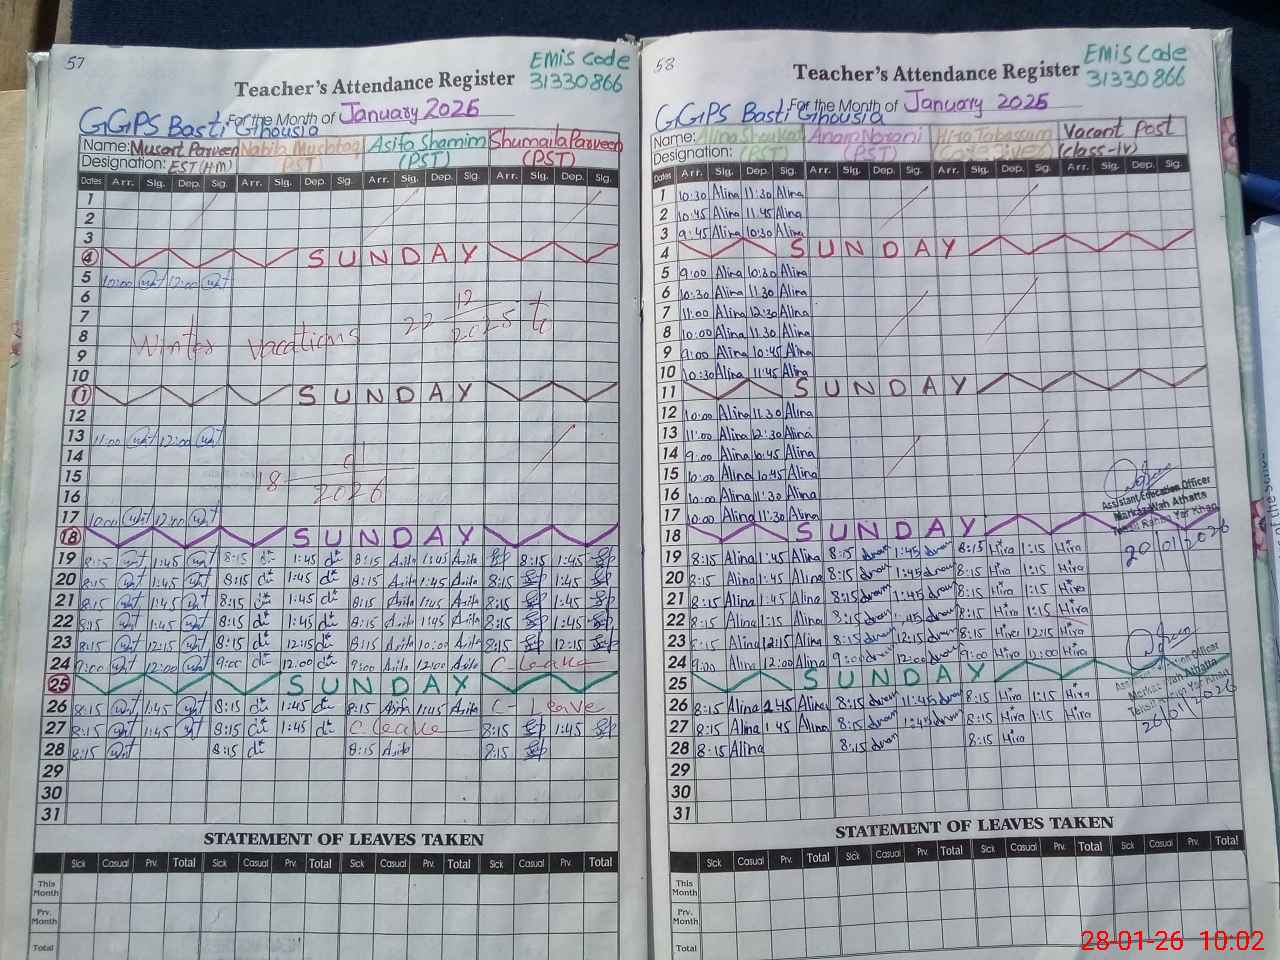 57
EMIS Code
31330866
Teacher's Attendance Register
For the Month of January 2026
GGPS Basti Ghousia
Name: Musart Parveen Nabila Mushtaq Asifa Shamim Shumaila Parveen
Designation: EST (H.M) PST (PST) (PST)
Dates Arr. Sig. Dep. Sig. Arr. Sig. Dep. Sig. Arr. Sig. Dep. Sig. Arr. Sig. Dep. Sig.
1
2
3
4 SUNDAY
5 10:00 12:00
6
7
8 Winter Vacations 22 12 2025 to
9
10
11 SUNDAY
12
13 11:00 12:00
14
15 18 01 2026
16
17 10:00 12:00
18 SUNDAY
19 8:15 1:45 8:15 1:45 8:15 Asifa 1:45 Asifa 8:15 1:45
20 8:15 1:45 8:15 1:45 8:15 Asifa 1:45 Asifa 8:15 1:45
21 8:15 1:45 8:15 1:45 8:15 Asifa 1:45 Asifa 8:15 1:45
22 8:15 1:45 8:15 1:45 8:15 Asifa 1:45 Asifa 8:15 1:45
23 8:15 12:15 8:15 12:15 8:15 Asifa 10:00 Asifa 8:15 12:15
24 9:00 12:00 9:00 12:00 9:00 Asifa 12:00 Asifa C-leave
25 SUNDAY
26 8:15 1:45 8:15 1:45 8:15 Asifa 1:45 Asifa C-Leave
27 8:15 1:45 8:15 1:45 C leave 8:15 1:45
28 8:15 8:15 8:15 Asifa 8:15
29
30
31
STATEMENT OF LEAVES TAKEN
Sick Casual Prv. Total Sick Casual Prv. Total Sick Casual Prv. Total Sick Casual Prv. Total
This Month
Prv. Month
Total
58
EMIS Code
31330866
Teacher's Attendance Register
For the Month of January 2026
GGPS Basti Ghousia
Name: Alina Shoukat Anam Noorani Hira Tabassum Vacant Post
Designation: (PST) (PST) (Care giver) (class-iv)
Dates Arr. Sig. Dep. Sig. Arr. Sig. Dep. Sig. Arr. Sig. Dep. Sig. Arr. Sig. Dep. Sig.
1 10:30 Alina 11:30 Alina
2 10:45 Alina 11:45 Alina
3 9:45 Alina 10:30 Alina
4 SUNDAY
5 9:00 Alina 10:30 Alina
6 10:30 Alina 11:30 Alina
7 11:00 Alina 12:30 Alina
8 10:00 Alina 11:30 Alina
9 9:00 Alina 10:45 Alina
10 10:30 Alina 11:45 Alina
11 SUNDAY
12 10:00 Alina 11:30 Alina
13 11:00 Alina 12:30 Alina
14 9:00 Alina 10:45 Alina
15 10:00 Alina 10:45 Alina
16 10:00 Alina 11:30 Alina
17 10:00 Alina 11:30 Alina
Assistant Education Officer
Markaz Wah Athatta
Tehsil Rahim Yar Khan
20/01/2026
18 SUNDAY
19 8:15 Alina 1:45 Alina 8:15 1:45 8:15 Hira 1:15 Hira
20 8:15 Alina 1:45 Alina 8:15 1:45 8:15 Hira 1:15 Hira
21 8:15 Alina 1:45 Alina 8:15 1:45 8:15 Hira 1:15 Hira
22 8:15 Alina 1:15 Alina 8:15 1:45 8:15 Hira 1:15 Hira
23 8:15 Alina 12:15 Alina 8:15 12:15 8:15 Hira 12:15 Hira
24 9:00 Alina 12:00 Alina 9:00 12:00 9:00 Hira 12:00 Hira
25 SUNDAY
26 8:15 Alina 1:45 Alina 8:15 1:45 8:15 Hira 1:15 Hira
27 8:15 Alina 1:45 Alina 8:15 1:45 8:15 Hira 1:15 Hira
28 8:15 Alina 8:15 8:15 Hira
Officer
Markaz Wah Athatta
Tehsil Rahim Yar Khan
26/01/2026
29
30
31
STATEMENT OF LEAVES TAKEN
Sick Casual Prv. Total Sick Casual Prv. Total Sick Casual Prv. Total Sick Casual Prv. Total
This Month
Prv. Month
Total
28-01-26 10:02